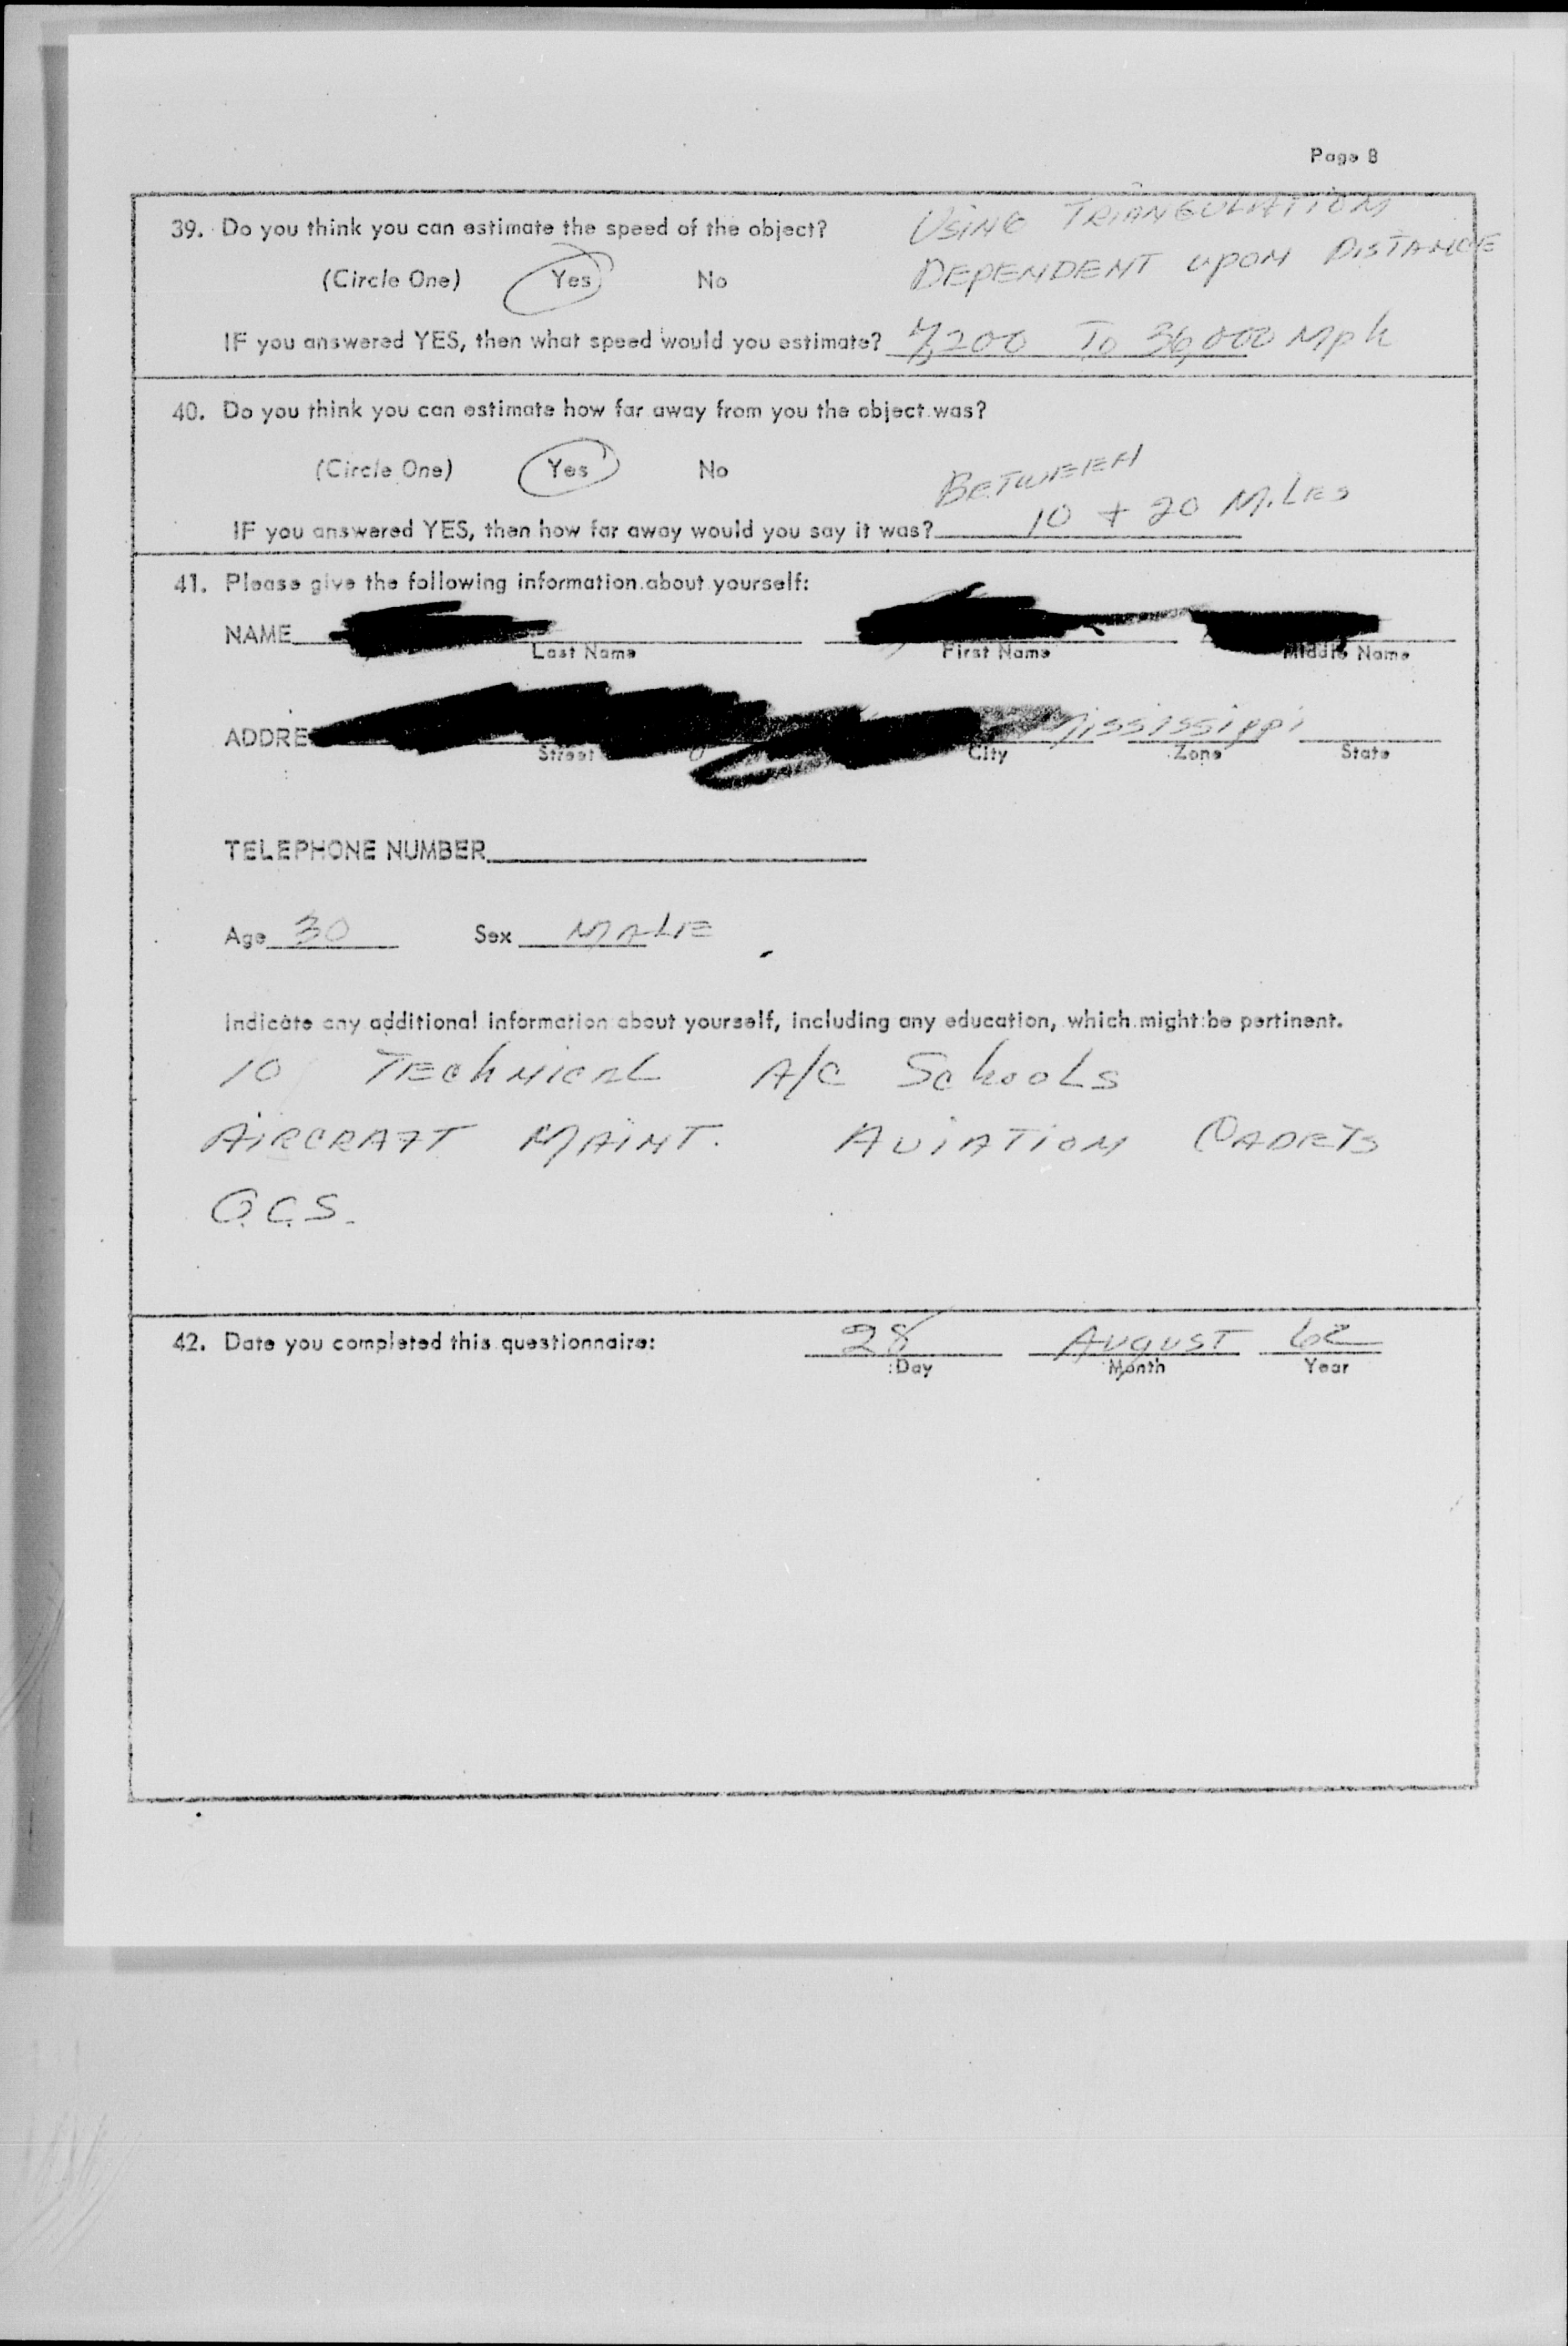 Page 8
39. Do you think you can estimate the speed of the object?
USING TRIANGULATION
DEPENDENT UPON DISTANCE
(Circle One) Yes No
IF you answered YES, then what speed would you estimate? 7,200 To 36,000 Mph
40. Do you think you can estimate how far away from you the object was?
(Circle One) Yes No
BETWEEN
IF you answered YES, then how far away would you say it was? 10 + 20 MiLES
41. Please give the following information about yourself:
NAME
Last Name First Name Middle Name
ADDRE Mississippi
Street City Zone State
TELEPHONE NUMBER
Age 30 Sex MALE
Indicate any additional information about yourself, including any education, which might be pertinent.
10 TEChNICAL A/C SchooLs
AIRCRAFT MAINT. AVIATION CADETS
O.C.S.
42. Date you completed this questionnaire: 28 AUGUST 62
Day Month Year